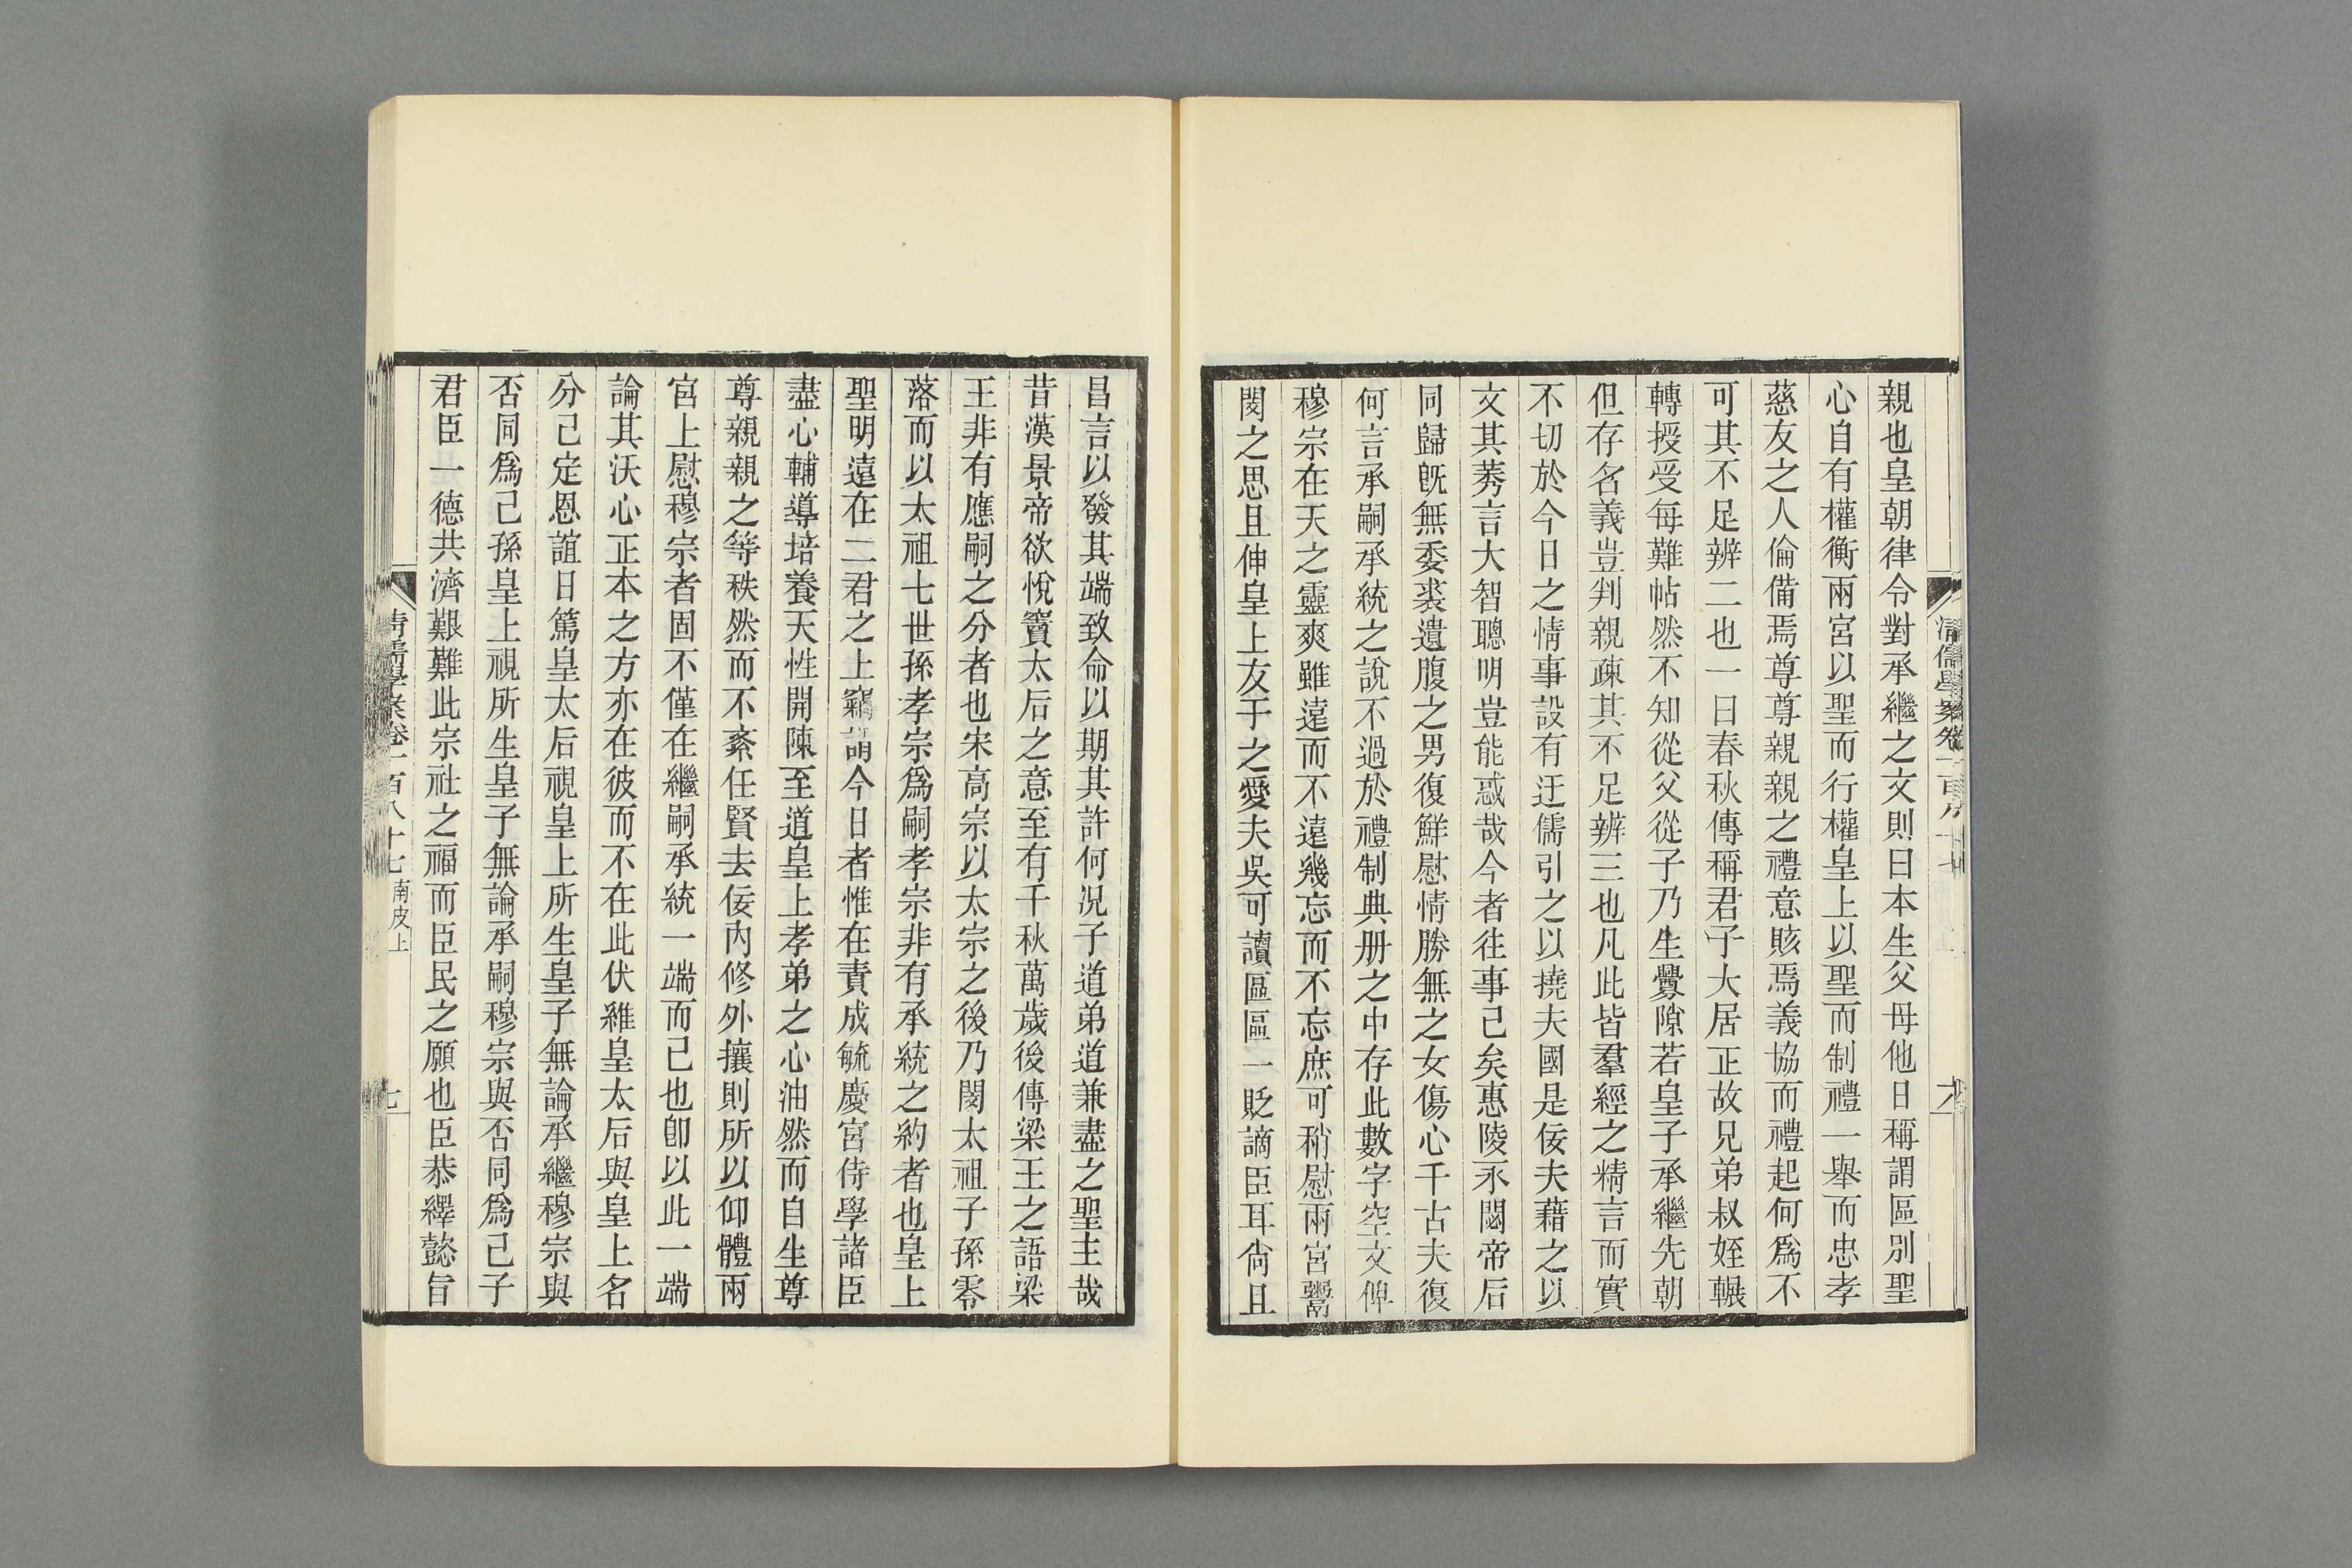 親也皇朝律令對承繼之文則曰本生父母他日稱謂區別聖
心自有權衡兩宮以聖而行權皇上以聖而制禮一舉而忠孝
慈友之人倫備焉尊尊親親之禮意賅焉義協而禮起何爲不
可其不足辨二也一曰春秋傳稱君子大居正故兄弟叔姪輾
轉授受每難帖然不知從父從子乃生釁隙若皇子承繼先朝
但存名義豈判親疎其不足辨三也凡此皆羣經之精言而實
不切於今日之情事設有迂儒引之以撓夫國是佞夫藉之以
文其莠言大智聰明豈能惑哉今者往事已矣惠陵永閟帝后
同歸旣無委裘遺腹之男復鮮慰情勝無之女傷心千古夫復
何言承嗣承統之說不過於禮制典册之中存此數字空文俾
穆宗在天之靈爽雖遠而不遠幾忘而不忘庶可稍慰兩宮鬻
閔之思且伸皇上友于之愛夫吳可讀區區一貶謫臣耳尙且
昌言以發其端致命以期其許何況子道弟道兼盡之聖主哉
昔漢景帝欲悅竇太后之意至有千秋萬歲後傳梁王之語梁
王非有應嗣之分者也宋高宗以太宗之後乃閔太祖子孫零
落而以太祖七世孫孝宗爲嗣孝宗非有承統之約者也皇上
聖明遠在二君之上竊謂今日者惟在責成毓慶宮侍學諸臣
盡心輔導培養天性開陳至道皇上孝弟之心油然而自生尊
尊親親之等秩然而不紊任賢去佞內修外攘則所以仰體兩
宮上慰穆宗者固不僅在繼嗣承統一端而已也卽以此一端
論其沃心正本之方亦在彼而不在此伏維皇太后與皇上名
分已定恩誼日篤皇太后視皇上所生皇子無論承繼穆宗與
否同爲己孫皇上視所生皇子無論承嗣穆宗與否同爲己子
君臣一德共濟艱難此宗社之福而臣民之願也臣恭繹懿旨
清儒學案卷一百八十七 南皮上 七